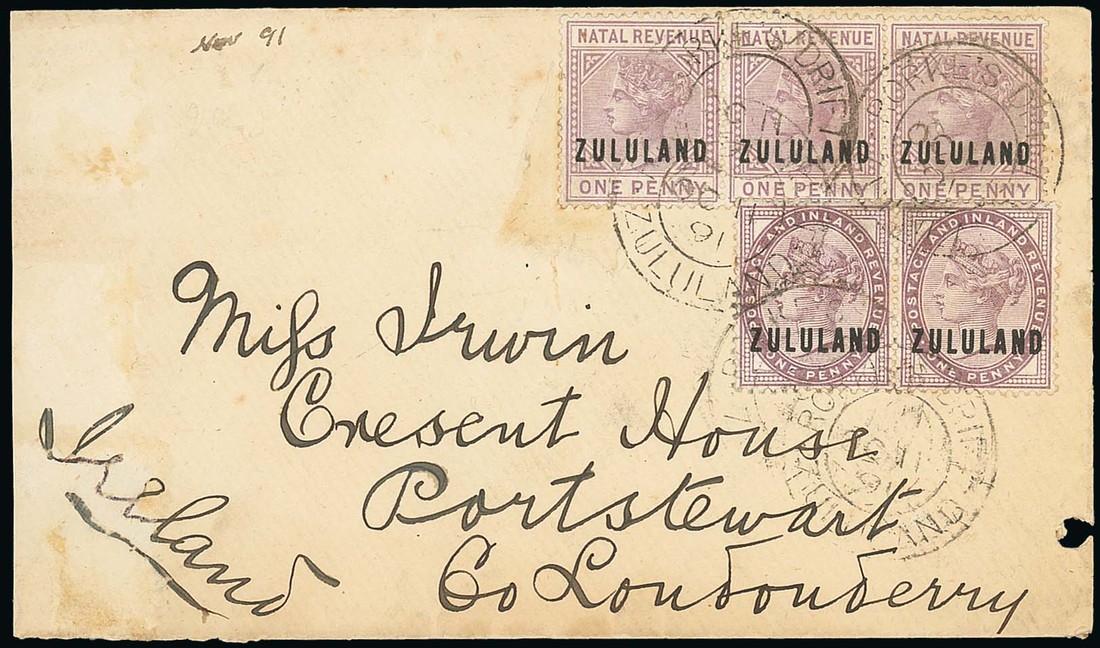 Nov 91
NATAL REVENUE NATAL REVENUE NATAL REVENUE
ZULULAND ZULULAND ZULULAND
ONE PENNY ONE PENNY ONE PENNY
POSTAGE AND INLAND REVENUE POSTAGE AND INLAND REVENUE
ZULULAND ZULULAND
ONE PENNY ONE PENNY
ZULULAND
91
Miss Irwin
Cresent House
Portstewart
Co Londonderry
Ireland